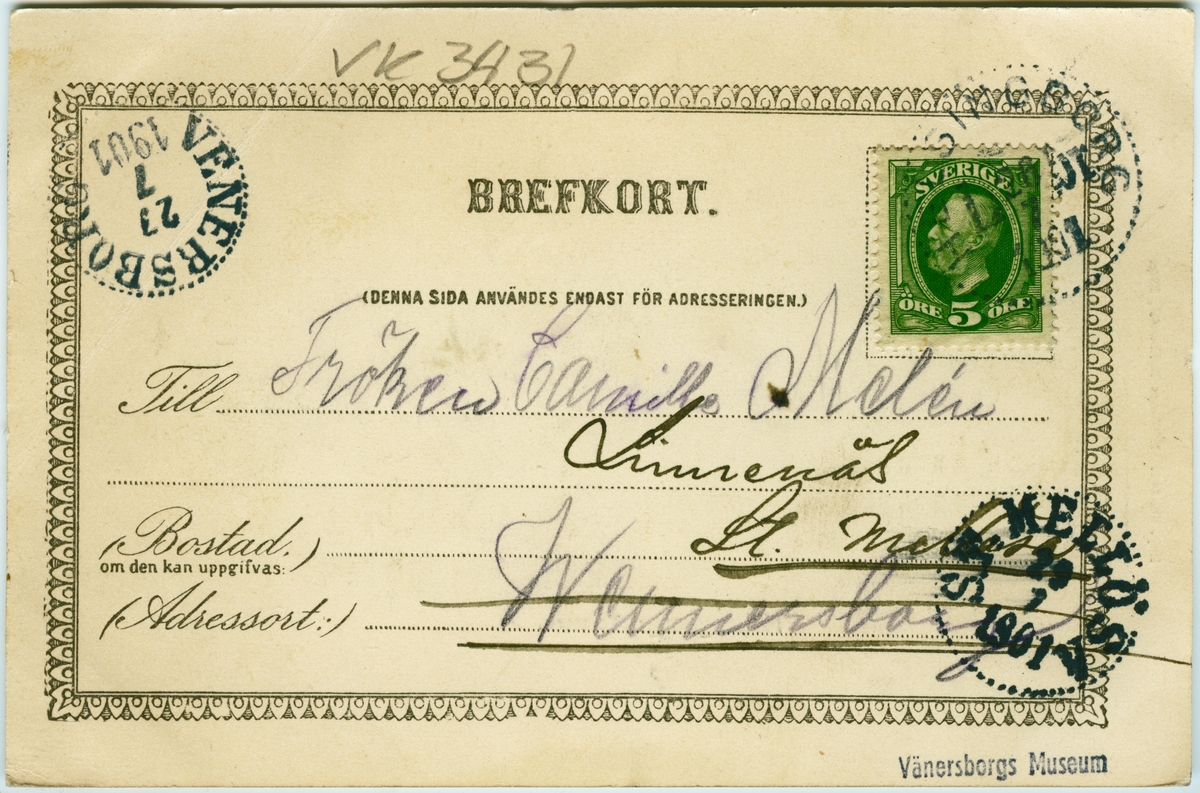 VK 3431
VENERSBORG
23
7
1901
BREFKORT.
SVERIGE
ÖRE 5 ÖRE
(DENNA SIDA ANVÄNDES ENDAST FÖR ADRESSERINGEN.)
Till Fröken Camilla Melén
Linnenäs
(Bostad.) St. Mellösa
om den kan uppgifvas:
(Adressort:) Wenersborg
ST. MELLÖSA
7
1901
Vänersborgs Museum